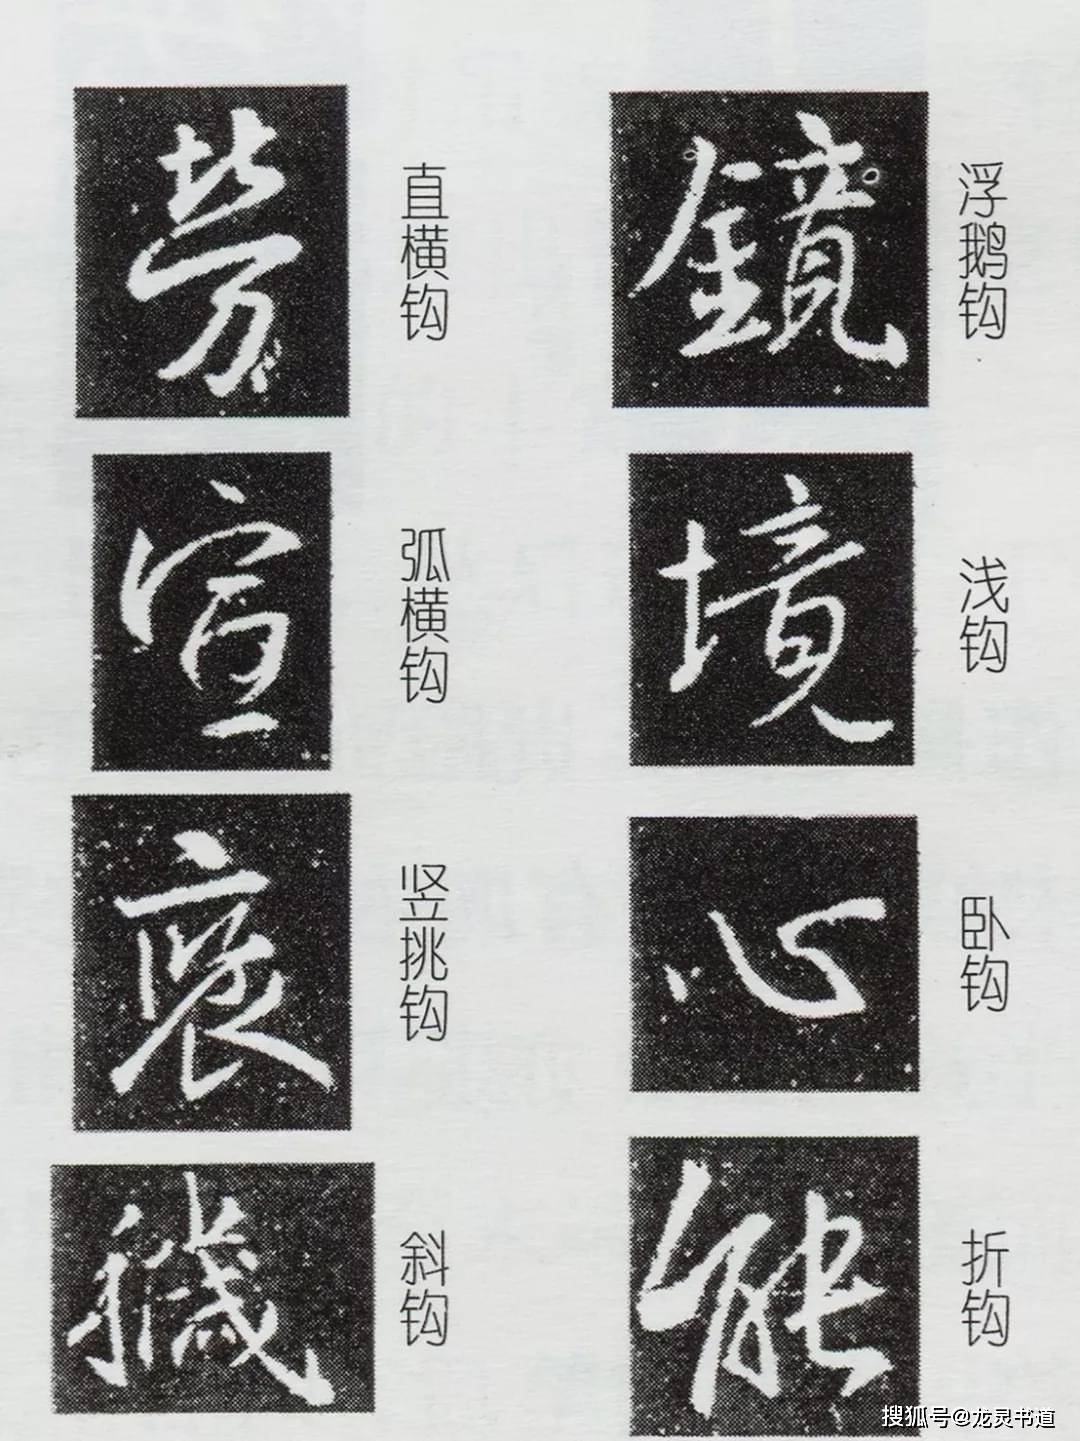 劳
直横钩
宣
弧横钩
竖挑钩
斜钩
鏡
浮鹅钩
境
浅钩
心
卧钩
能
折钩
搜狐号@龙灵书道